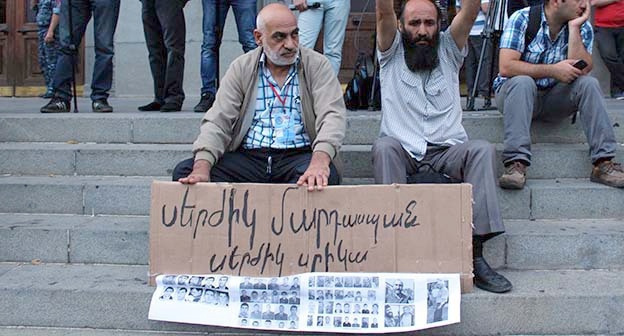 սերժիկ մարդասպան
սերժիկ սրիկա